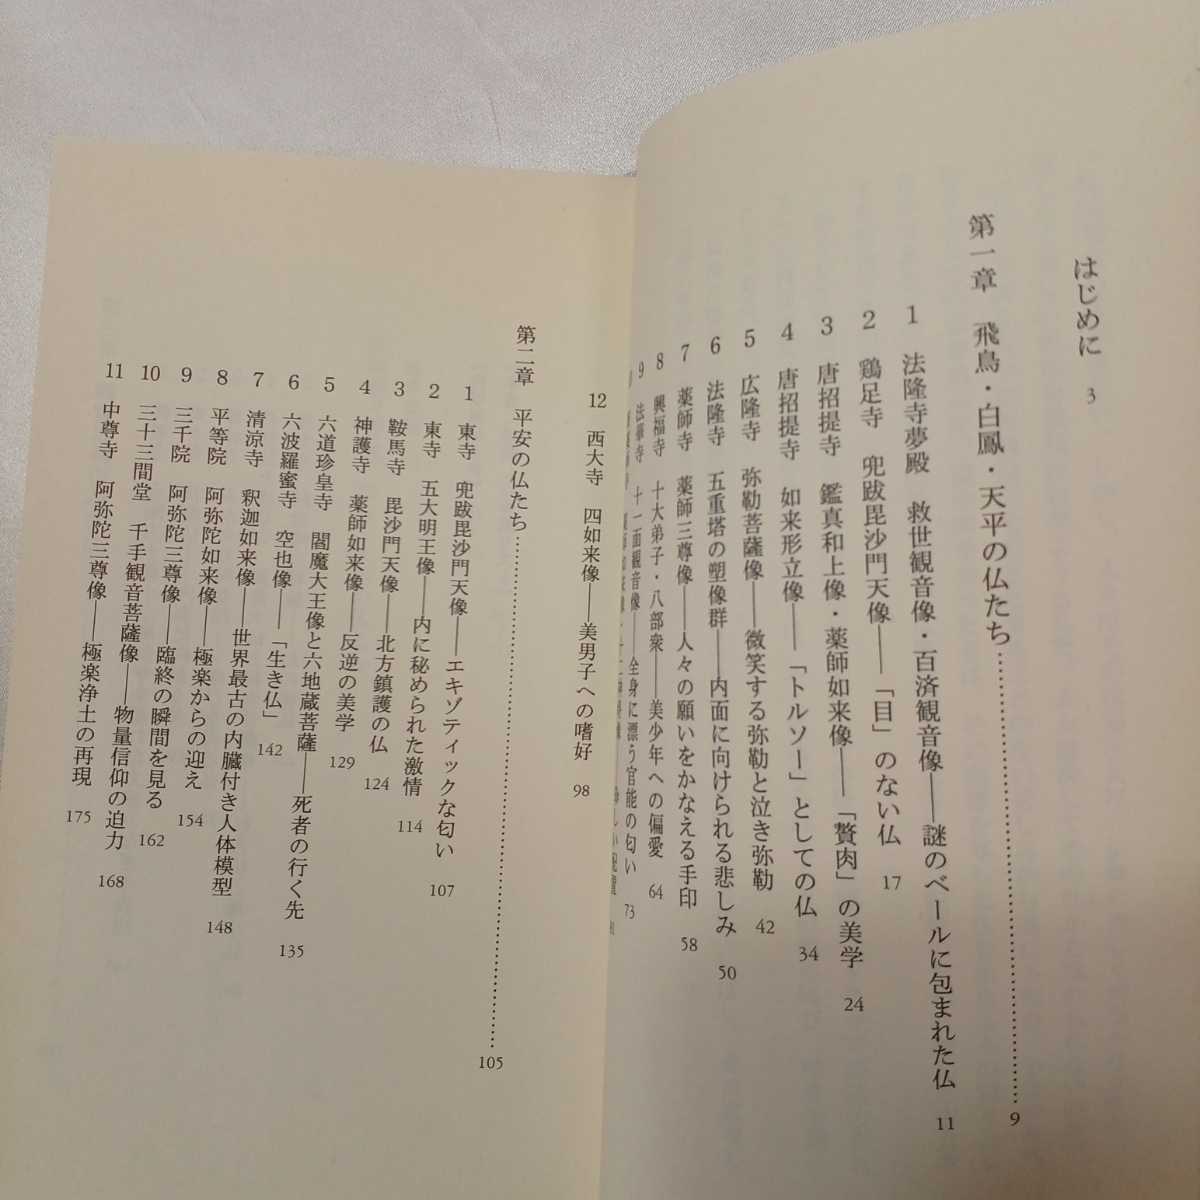 はじめに 3
第一章 飛鳥・白鳳・天平の仏たち…………………… 9
1 法隆寺夢殿 救世観音像・百済観音像――謎のベールに包まれた仏 11
2 鶏足寺 兜跋毘沙門天像――「目」のない仏 17
3 唐招提寺 鑑真和上像・薬師如来像――「贅肉」の美学 24
4 唐招提寺 如来形立像――「トルソー」としての仏 34
5 広隆寺 弥勒菩薩像――微笑する弥勒と泣き弥勒 42
6 法隆寺 五重塔の塑像群――内面に向けられる悲しみ 50
7 薬師寺 薬師三尊像――人々の願いをかなえる手印 58
8 興福寺 十大弟子・八部衆――美少年への偏愛 64
9 法華寺 十一面観音像――全身に漂う官能の匂い 73
12 西大寺 四如来像――美男子への嗜好 98
第二章 平安の仏たち…………………… 105
1 東寺 兜跋毘沙門天像――エキゾティックな匂い 107
2 東寺 五大明王像――内に秘められた激情 114
3 鞍馬寺 毘沙門天像――北方鎮護の仏 124
4 神護寺 薬師如来像――反逆の美学 129
5 六道珍皇寺 閻魔大王像と六地蔵菩薩――死者の行く先 135
6 六波羅蜜寺 空也像――「生き仏」 142
7 清涼寺 釈迦如来像――世界最古の内臓付き人体模型 148
8 平等院 阿弥陀如来像――極楽からの迎え 154
9 三千院 阿弥陀三尊像――臨終の瞬間を見る 162
10 三十三間堂 千手観音菩薩像――物量信仰の迫力 168
11 中尊寺 阿弥陀三尊像――極楽浄土の再現 175